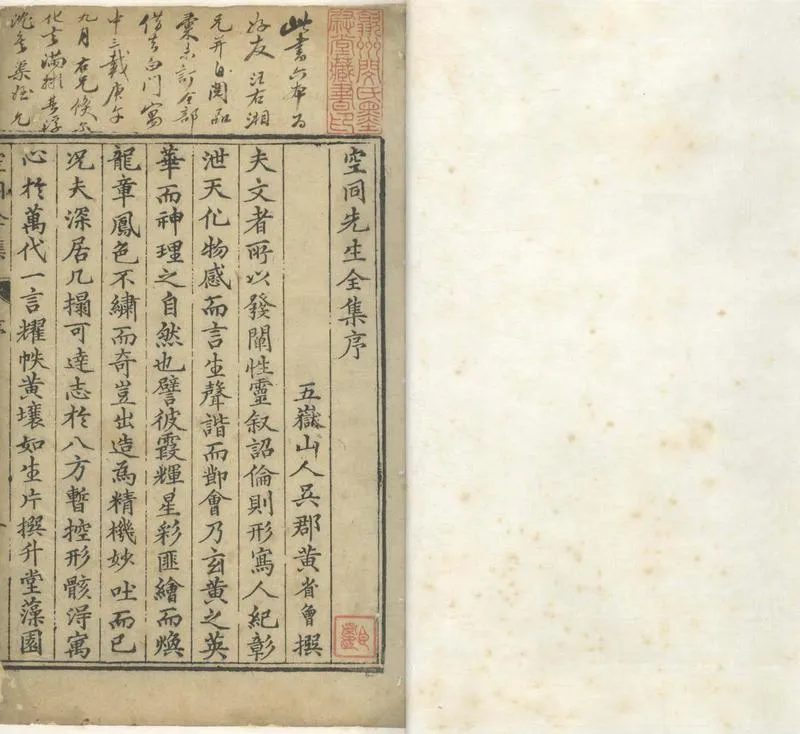 此書六本为
好友汪右湘
兄并自閱品
棄未訂全部
借去白門寓
中三載庚午
九月右兄
空同先生全集序
五嶽山人吳郡黃省曾撰
夫文者所以發闡性靈叙詔倫則形寫人紀彰
泄天化物感而言生聲諧而節會乃玄黃之英
華而神理之自然也譬彼霞輝星彩匪繪而煥
龍章鳳色不繡而奇豈出造為精機妙吐而已
况夫深居几搨可達志於八方暫控形骸淂寓
心於萬代一言耀帙黃壤如生片撰升堂藻園
空同全集
序